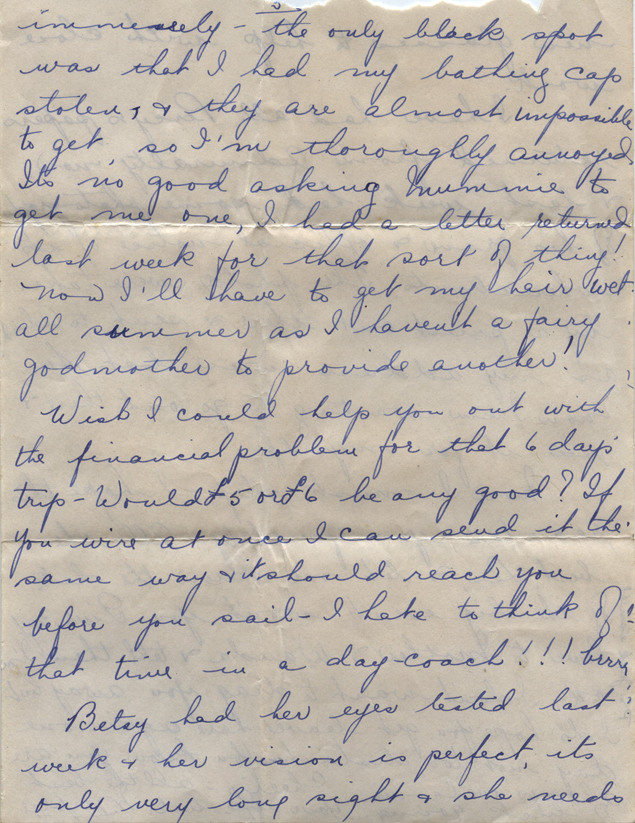 immensely - the only black spot
was that I had my bathing cap
stolen, & they are almost impossible
to get so I'm thoroughly annoyed.
It's no good asking Mummie to
get me one, I had a letter returned
last week for that sort of thing!
Now I'll have to get my hair wet
all summer as I haven't a fairy
godmother to provide another!
Wish I could help you out with
the financial problem for that 6 days
trip - Would £5 or £6 be any good? If
you wire at once I can send it the
same way & it should reach you
before you sail - I hate to think of
that time in a day-coach!!! brrr
Betsy had her eyes tested last
week & her vision is perfect, its
only very long sight & she needs